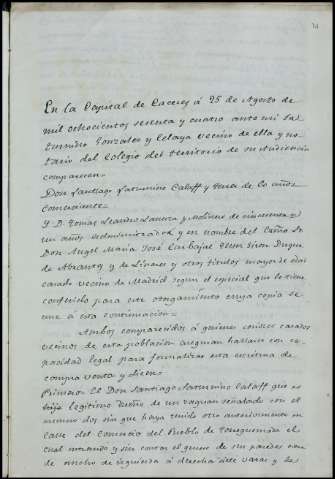 En la Capital de Caceres á 25 de Agosto de
mil ochocientos setenta y cuatro ante mi Sa
turnino Gonzalez y Celaya vecino de ella y no
tario del Colegio del territorio de su Audiencia
comparecen
Don Santiago Saturnino Calaff y de 60 años
Comerciante
Y D. Tomas Leandro y Molina de cincuenta y
un años administrador y en nombre del Exmo Sor
Don Angel Maria José Carbajal Tellez Giron Duque
de Abrantes y de Linares y otros titulos mayor de edad
casado vecino de Madrid segun el especial que le tiene
conferido para este otorgamiento cuya copia se
une á esta continuacion
Ambos comparecidos á quienes conozco casados
vecinos de esta poblacion aseguran hallarse con ca
pacidad legal para formalizar esta escritura de
compra venta y dicen
Primero El Don Santiago Saturnino Calaff que es
legitimo dueño de un señalado con el
numero dos sin que haya tenido otro anteriormente en
calle del Comercio del Pueblo de el
cual mirando y sin contar el grueso de sus paredes
de ancho de izquierda á derecha siete varas y